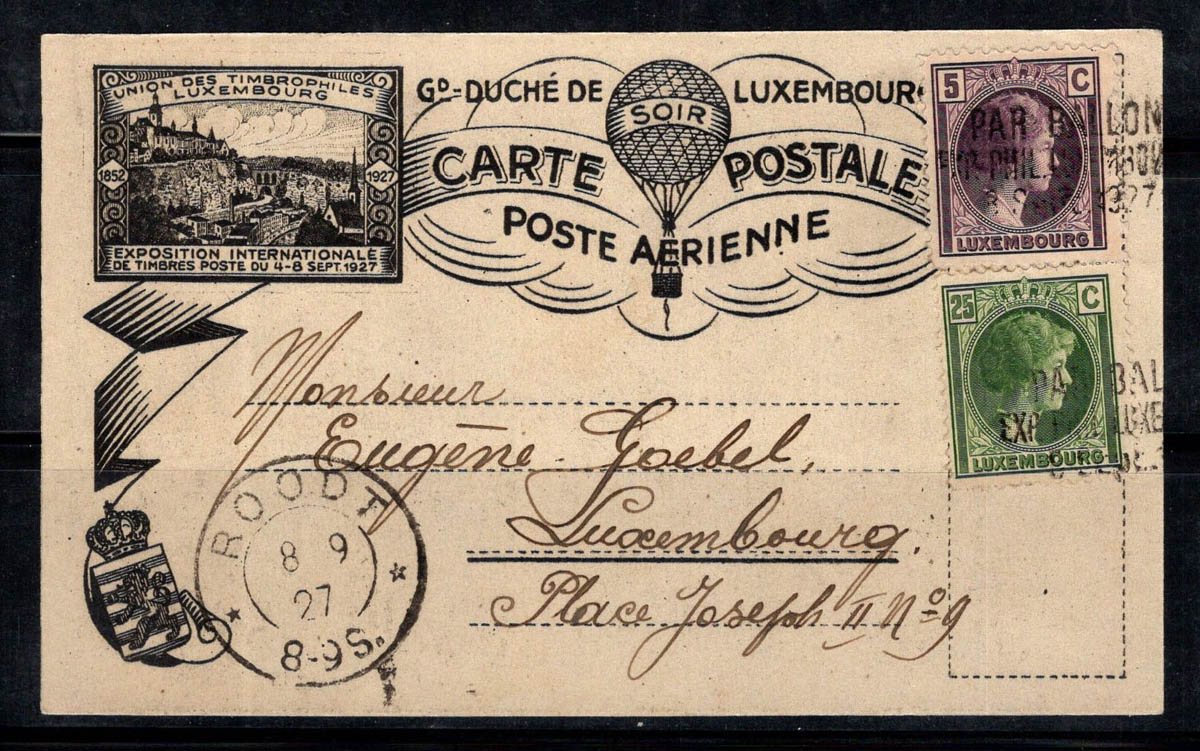 UNION DES TIMBROPHILES
LUXEMBOURG
1852 1927
EXPOSITION INTERNATIONALE
DE TIMBRES POSTE DU 4-8 SEPT. 1927
GD-DUCHÉ DE LUXEMBOUR
SOIR
CARTE POSTALE
POSTE AÉRIENNE
5 C
PAR BALLON
1927
LUXEMBOURG
25 C
PAR BAL
EXP LUXE
LUXEMBOURG
Monsieur
Eugène Goebel,
Luxembourg.
Place Joseph II No 9
ROODT
8 9
27
8-9S.